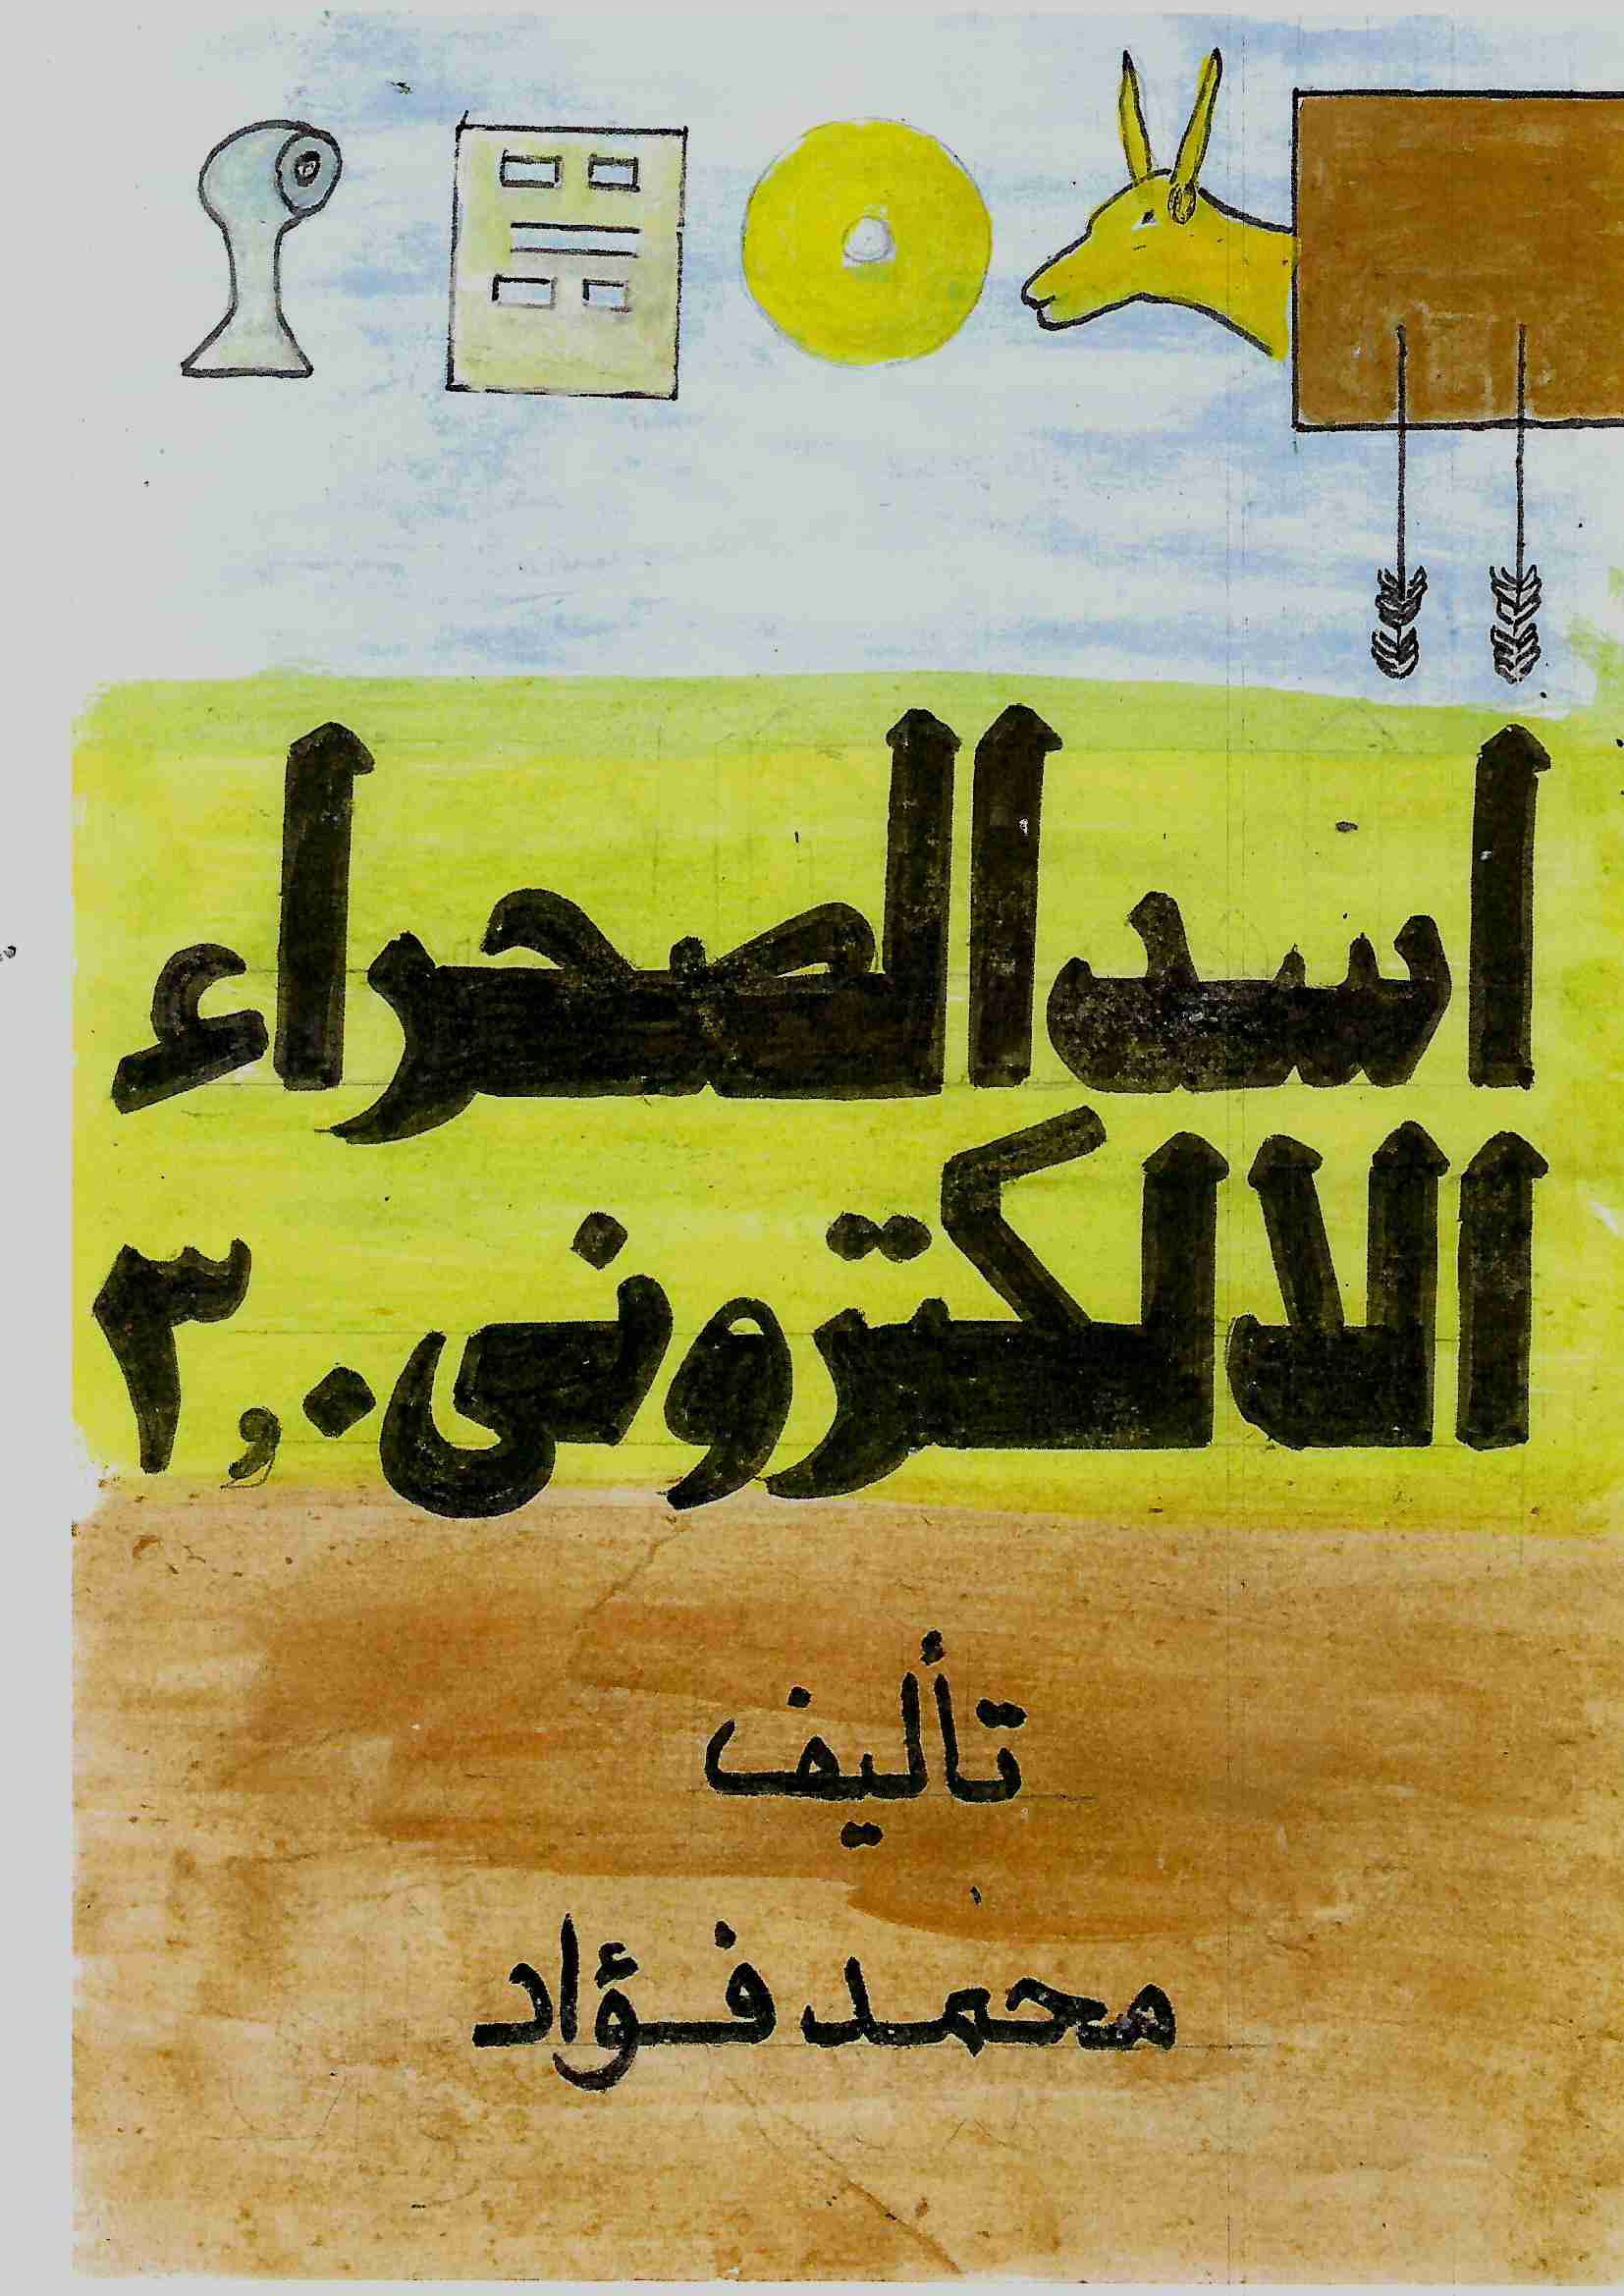 اسد الصحراء
الالكترونى ٣,٠
تأليف
محمد فؤاد